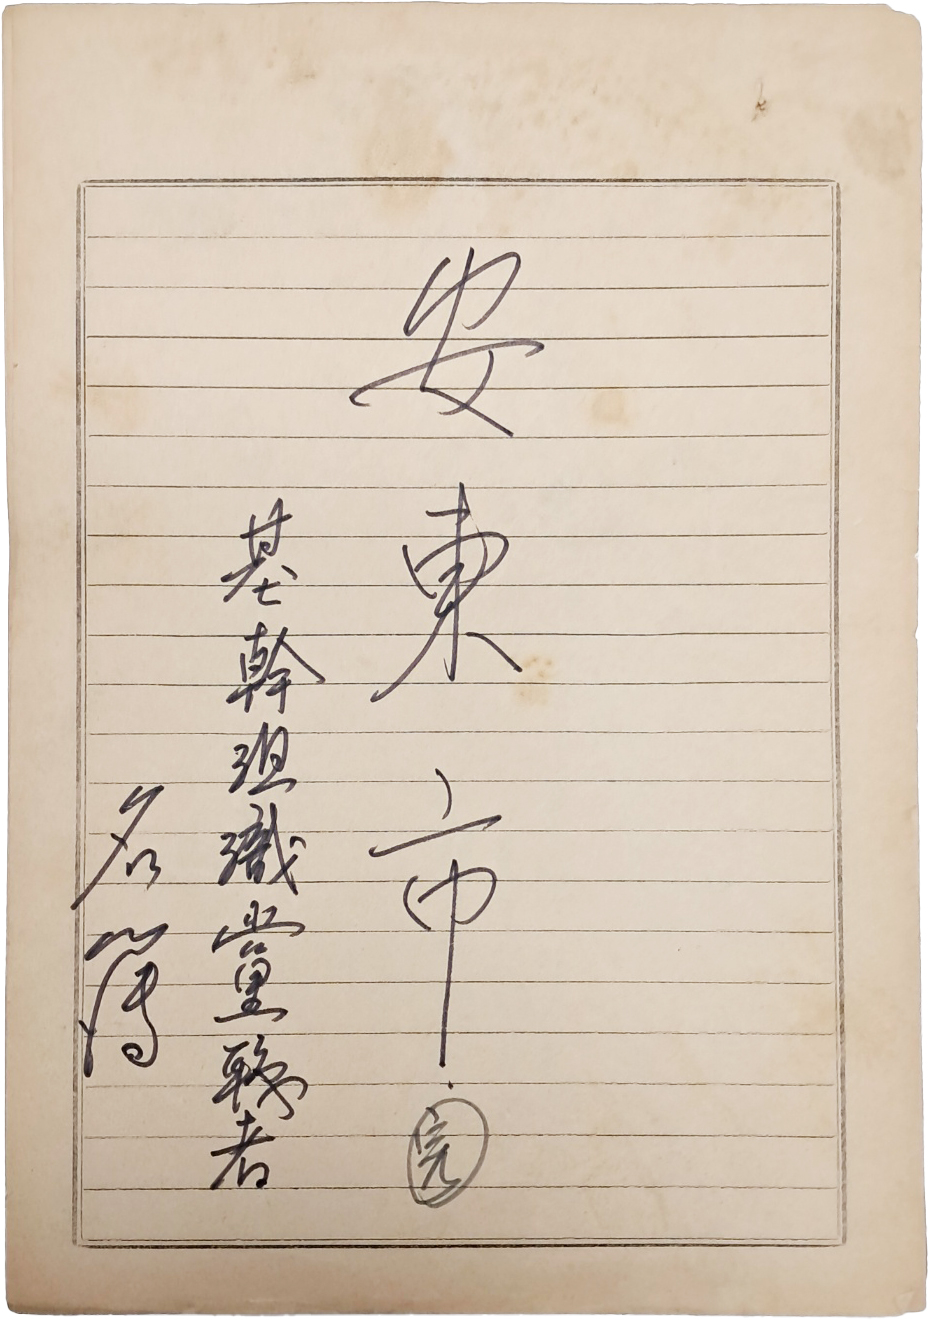 安東市
完
基幹組織黨職者
名簿